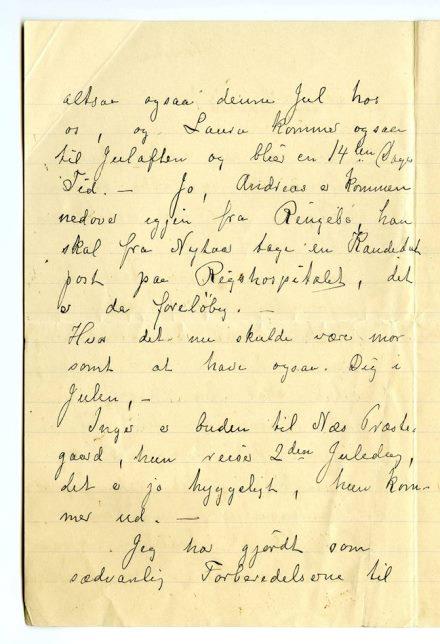 altsaa ogsaa denne Jul hos
os, og Laura kommer ogsaa
til Julaften og blir en 14 ten Dages
Tid. — Jo, Andreas e kommen
nedover igjen fra Ringebo, han
skal fra Nytaar tage en Kandidat
post paa Rigshospitalet, det
e da foreløbig. —
Hvor det nu skulde være mor
somt at have ogsaa Dig i
Julen, —
Inger e buden til Næs Præste-
gaard, hun reise 2den Juledag,
det e jo hyggeligt, hun kom-
mer ud. —
Jeg ha gjördt som
sædvanlig Forberedelserne til